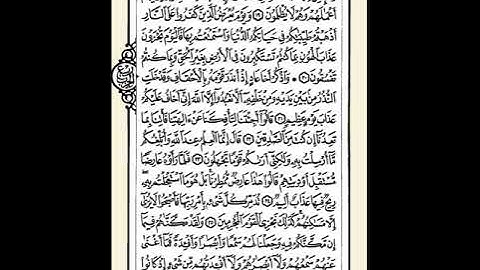 أَعْمَٰلَهُمْ وَهُمْ لَا يُظْلَمُونَ ١٩ وَيَوْمَ يُعْرَضُ ٱلَّذِينَ كَفَرُوا۟ عَلَى ٱلنَّارِ
أَذْهَبْتُمْ طَيِّبَٰتِكُمْ فِى حَيَاتِكُمُ ٱلدُّنْيَا وَٱسْتَمْتَعْتُم بِهَا فَٱلْيَوْمَ تُجْزَوْنَ
عَذَابَ ٱلْهُونِ بِمَا كُنتُمْ تَسْتَكْبِرُونَ فِى ٱلْأَرْضِ بِغَيْرِ ٱلْحَقِّ وَبِمَا كُنتُمْ
تَفْسُقُونَ ٢٠ وَٱذْكُرْ أَخَا عَادٍ إِذْ أَنذَرَ قَوْمَهُۥ بِٱلْأَحْقَافِ وَقَدْ خَلَتِ
ٱلنُّذُرُ مِنۢ بَيْنِ يَدَيْهِ وَمِنْ خَلْفِهِۦٓ أَلَّا تَعْبُدُوٓا۟ إِلَّا ٱللَّهَ إِنِّىٓ أَخَافُ عَلَيْكُمْ
عَذَابَ يَوْمٍ عَظِيمٍ ٢١ قَالُوٓا۟ أَجِئْتَنَا لِتَأْفِكَنَا عَنْ ءَالِهَتِنَا فَأْتِنَا بِمَا
تَعِدُنَآ إِن كُنتَ مِنَ ٱلصَّٰدِقِينَ ٢٢ قَالَ إِنَّمَا ٱلْعِلْمُ عِندَ ٱللَّهِ وَأُبَلِّغُكُم
مَّآ أُرْسِلْتُ بِهِۦ وَلَٰكِنِّىٓ أَرَىٰكُمْ قَوْمًا تَجْهَلُونَ ٢٣ فَلَمَّا رَأَوْهُ عَارِضًا
مُّسْتَقْبِلَ أَوْدِيَتِهِمْ قَالُوا۟ هَٰذَا عَارِضٌ مُّمْطِرُنَا بَلْ هُوَ مَا ٱسْتَعْجَلْتُم بِهِۦ
رِيحٌ فِيهَا عَذَابٌ أَلِيمٌ ٢٤ تُدَمِّرُ كُلَّ شَىْءٍۭ بِأَمْرِ رَبِّهَا فَأَصْبَحُوا۟ لَا يُرَىٰٓ
إِلَّا مَسَٰكِنُهُمْ كَذَٰلِكَ نَجْزِى ٱلْقَوْمَ ٱلْمُجْرِمِينَ ٢٥ وَلَقَدْ مَكَّنَّٰهُمْ فِيمَآ
إِن مَّكَّنَّٰكُمْ فِيهِ وَجَعَلْنَا لَهُمْ سَمْعًا وَأَبْصَٰرًا وَأَفْـِٔدَةً فَمَآ أَغْنَىٰ
عَنْهُمْ سَمْعُهُمْ وَلَآ أَبْصَٰرُهُمْ وَلَآ أَفْـِٔدَتُهُم مِّن شَىْءٍ إِذْ كَانُوا۟